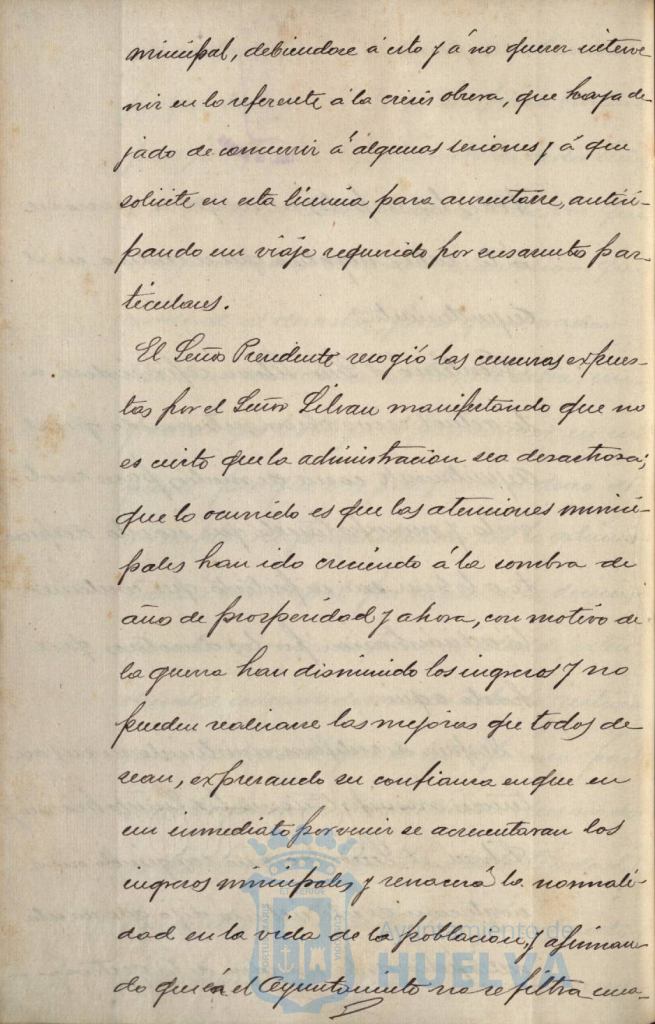 municipal, debiendose á esto y á no querer interve
nir en lo referente á la crisis obrera, que haya de-
jado de concurrir á algunas sesiones y á que
solicite en esta licencia para ausentarse, antici-
pando un viaje requerido por sus asuntos par-
ticulares.
El Señor Presidente recogió las censuras expues-
tas por el Señor Silvan manifestando que no
es cierto que la administracion sea desastrosa;
que lo ocurrido es que las atenciones munici-
pales han ido creciendo á la sombra de
año de prosperidad y ahora, con motivo de
la guerra han disminuido los ingresos y no
pueden realizarse las mejoras que todos de
sean, expresando su confianza en que en
un inmediato porvenir se acrecentaran los
ingresos municipales y renacerá la normali-
dad en la vida de la poblacion, y afirman
do que en el Ayuntamiento no se filtra una
Ayuntamiento de
HUELVA